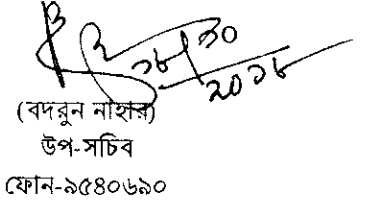 ১৮/১০
২০১৮
(বদরুন নাহার)
উপ-সচিব
ফোন-৯৫৪০৬৯০